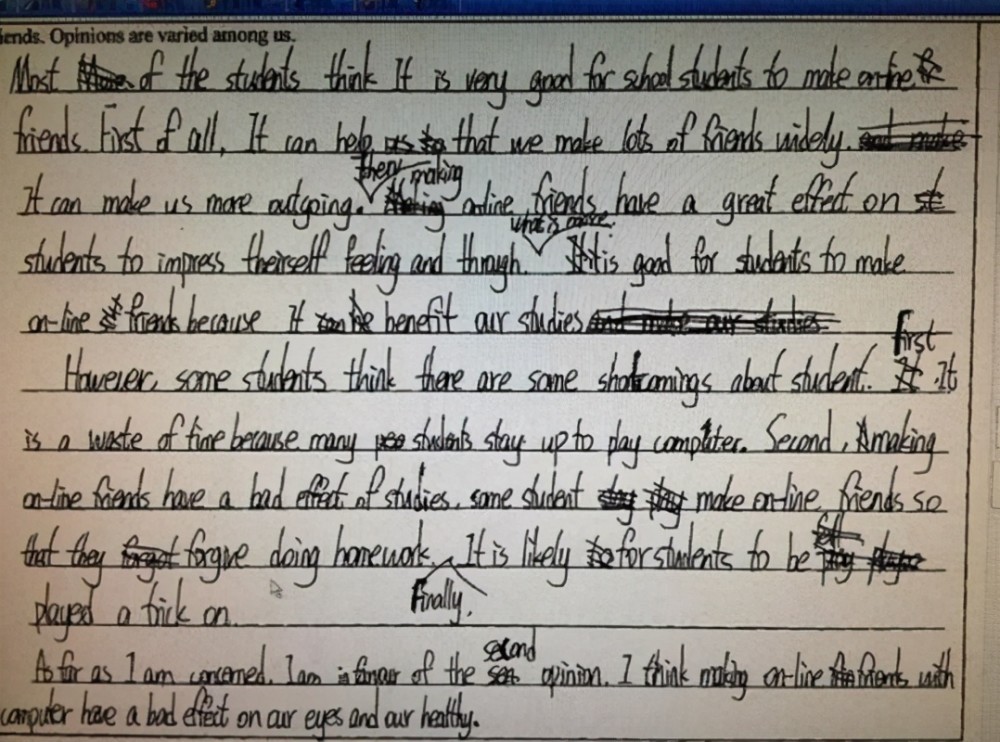 iends. Opinions are varied among us.
Most of the students think It is very good for school students to make on-line
friends. First of all, It can help that we make lots of friends widely.
then, making
It can make us more outgoing. online friends have a great effect on
what is more.
students to impress theirself feeling and through. It is good for students to make
on-line friends because it benefit our studies
first
However, some students think there are some shotcomings about student. It
is a waste of time because many students stay up to play computer. Second, making
on-line friends have a bad effect of studies. some student make on-line friends so
that they forgive doing homework. It is likely for students to be
Finally.
played a trick on.
second
As far as I am concerned. I am in favour of the opinion. I think making on-line friends with
computer have a bad effect on our eyes and our healthy.